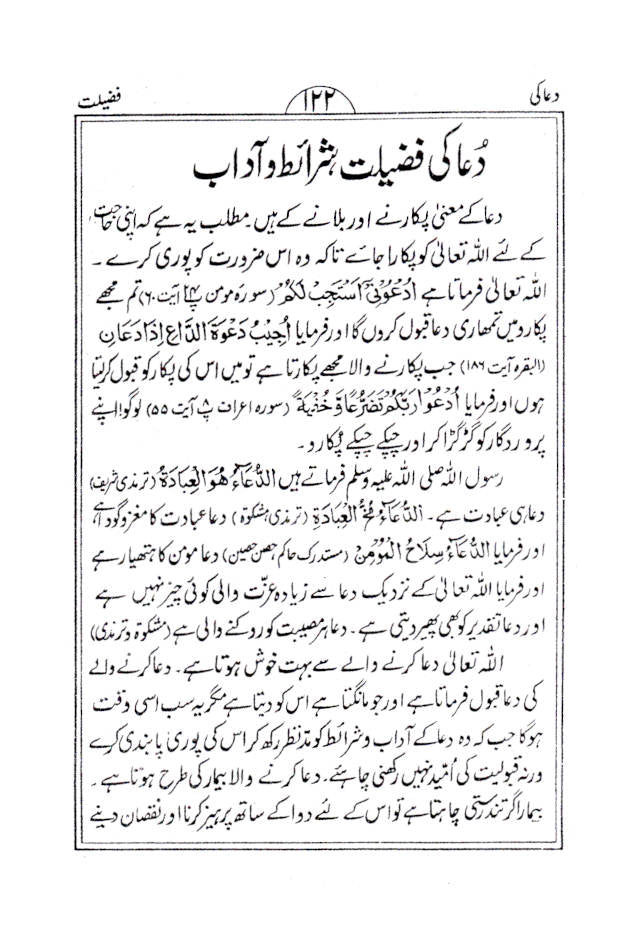 دعا کی ۱۲۲ فضیلت
دُعا کی فضیلت شرائط و آداب
دعا کے معنیٰ پکارنے اور بلانے کے ہیں۔ مطلب یہ ہے کہ اپنی حاجت
کے لئے اللہ تعالیٰ کو پکارا جائے تاکہ وہ اس ضرورت کو پوری کرے ۔
اللہ تعالیٰ فرماتا ہے اُدْعُوْنِیْٓ اَسْتَجِبْ لَکُمْ (سورہ مومن آیت ۶۰) تم مجھے
پکارو میں تمھاری دعا قبول کروں گا اور فرمایا اُجِیْبُ دَعْوَةَ الدَّاعِ اِذَا دَعَانِ
(البقرہ آیت ۱۸۶) جب پکارنے والا مجھے پکارتا ہے تو میں اس کی پکار کو قبول کرلیتا
ہوں اور فرمایا اُدْعُوْا رَبَّکُمْ تَضَرُّعًا وَّ خُفْیَةً (سورہ اعراف آیت ۵۵) لوگو! اپنے
پروردگار کو گڑگڑا کر اور چپکے چپکے پکارو۔
رسول اللہ صلی اللہ علیہ وسلم فرماتے ہیں اَلدُّعَآءُ هُوَ الْعِبَادَةُ (ترمذی شریف)
دعا ہی عبادت ہے۔ اَلدُّعَآءُ مُخُّ الْعِبَادَةِ (ترمذی مشکوٰۃ) دعا عبادت کا مغز و گودا ہے
اور فرمایا اَلدُّعَآءُ سِلَاحُ الْمُؤْمِنِ (مستدرک حاکم حصن حصین) دعا مومن کا ہتھیار ہے
اور فرمایا اللہ تعالیٰ کے نزدیک دعا سے زیادہ عزّت والی کوئی چیز نہیں ہے
اور دعا تقدیر کو بھی پھیر دیتی ہے۔ دعا ہر مصیبت کو روکنے والی ہے (مشکوٰۃ و ترمذی)
اللہ تعالیٰ دعا کرنے والے سے بہت خوش ہوتا ہے۔ دعا کرنے والے
کی دعا قبول فرماتا ہے اور جو مانگتا ہے اس کو دیتا ہے مگر یہ سب اسی وقت
ہوگا جب کہ وہ دعا کے آداب و شرائط کو مدّنظر رکھ کر اس کی پوری پابندی کرے
ورنہ قبولیت کی اُمّید نہیں رکھنی چاہئے۔ دعا کرنے والا بیمار کی طرح ہوتا ہے۔
بیمار اگر تندرستی چاہتا ہے تو اس کے لئے دوا کے ساتھ پرہیز کرنا اور نقصان دینے